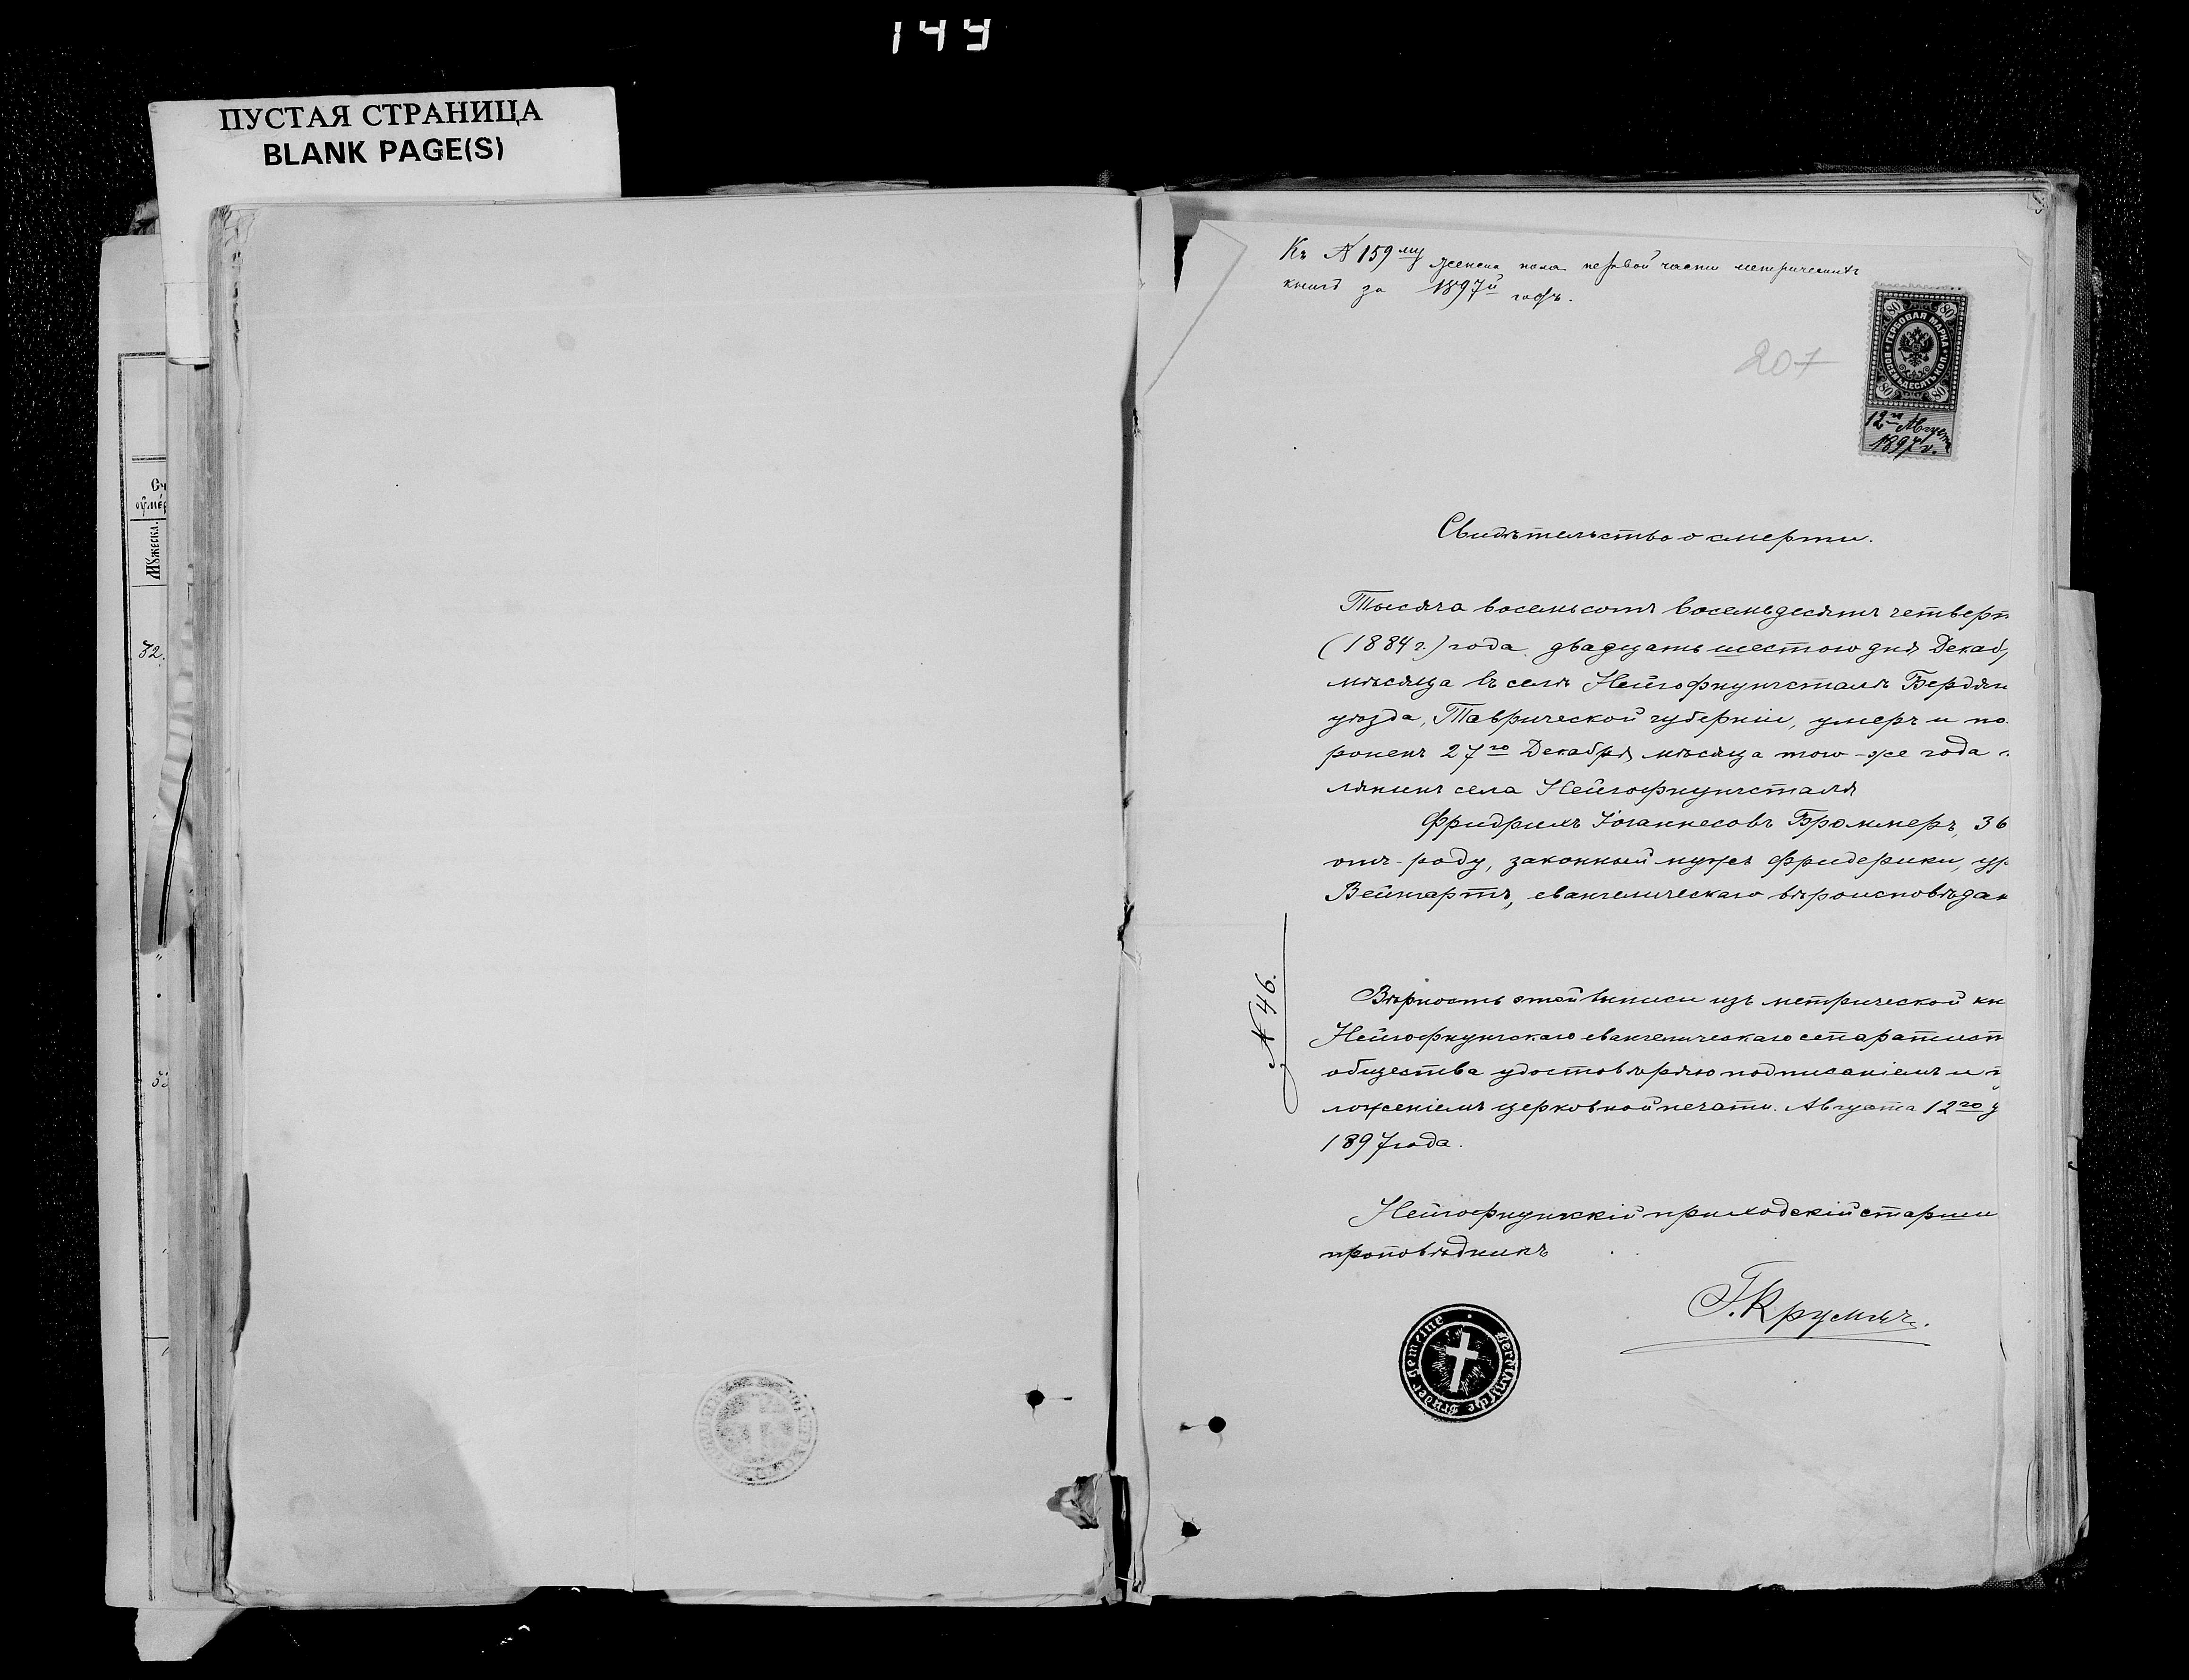 144
ПУСТАЯ СТРАНИЦА
BLANK PAGE(S)
Мужеска.
32.
Къ № 159му женска пола первой части метрическихъ
книгъ за 1897й годъ.
207
80 80
ГЕРБОВАЯ МАРКА
ВОСЕМЬДЕСЯТЪ КОП.
80 80
12го Августа
1897 г.
Свидѣтельство о смерти.
Тысяча восемьсотъ восемьдесятъ четверт
(1884 г.) года двадцать шестого дня Декаб
мѣсяца въ селѣ Нейгофнунгсталѣ Бердян
уѣзда, Таврической губерніи, умеръ и по
роненъ 27го Декабря мѣсяца того-же года
лянинъ села Нейгофнунгсталя
Фридрихъ Іоганнесовъ Броммеръ, 36
отъ-роду, законный мужъ Фридерики, ур
Вейгартъ, евангелическаго вѣроисповѣдан
№ 46.
Вѣрность этой выписи изъ метрической кн
Нейгофнунгскаго евангелическаго сепаратист
общества удостовѣряю подписаніемъ и п
ложеніемъ церковной печати. Августа 12го д
1897 года.
Нейгофнунгскій приходскій старши
проповѣдникъ
Г. Крумлъ.
Berdianische Bruder Gemeine